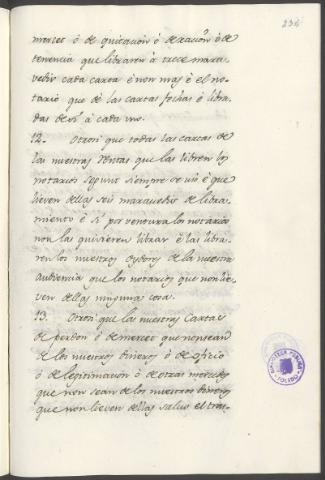 234
merced ó de quitacion ó de racion ó de
tenencia que libraren á trece mara-
vedis cada carta é non mas é el no-
tario que dé las cartas fechas é libra-
das de á cada uno.
12. Otrosi que todas las cartas de
las nuestras rentas que las libren los
notarios segunt siempre se usó é que
lieven dellas seis maravedis de libra-
miento é si por ventura los notarios
non las quisieren librar é las libra-
ren los nuestros oydores de la nuestra
audiencia que los notarios que non lie-
ven dellas ninguna cosa.
13. Otrosi que las nuestras Cartas
de perdon ó de merced que non sean
de los nuestros dineros ó de oficio
ó de legitimacion ó de otras mercedes
que non sean de los nuestros dineros
que non lieven dellas salvo el tras-
BIBLIOTECA PUBLICA
TOLEDO